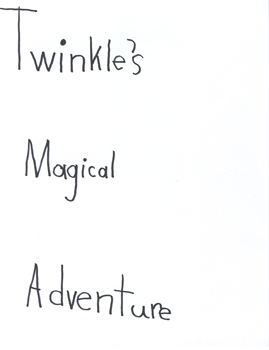 Twinkle's
Magical
Adventure